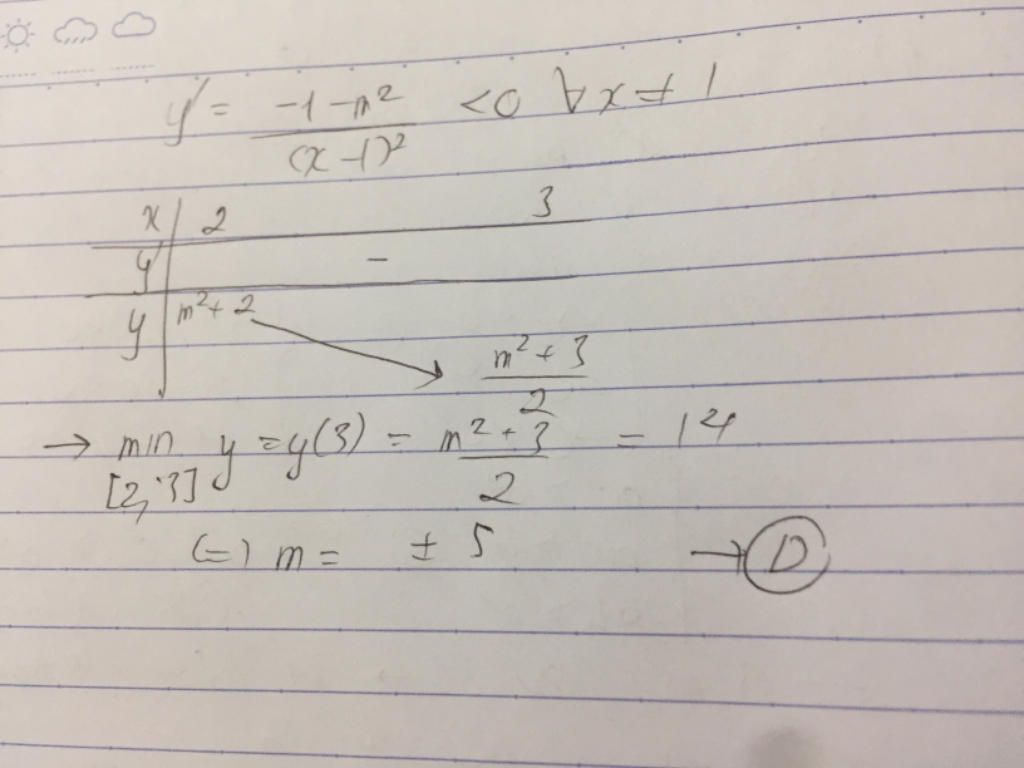 y' = \frac{-1-m^2}{(x-1)^2} <0 ∀x ≠ 1
x | 2 3
y' | -
y | m^2+2 ↘ \frac{m^2+3}{2}
→ min_{[2,3]} y = y(3) = \frac{m^2+3}{2} = 14
(=) m = ± 5 → D